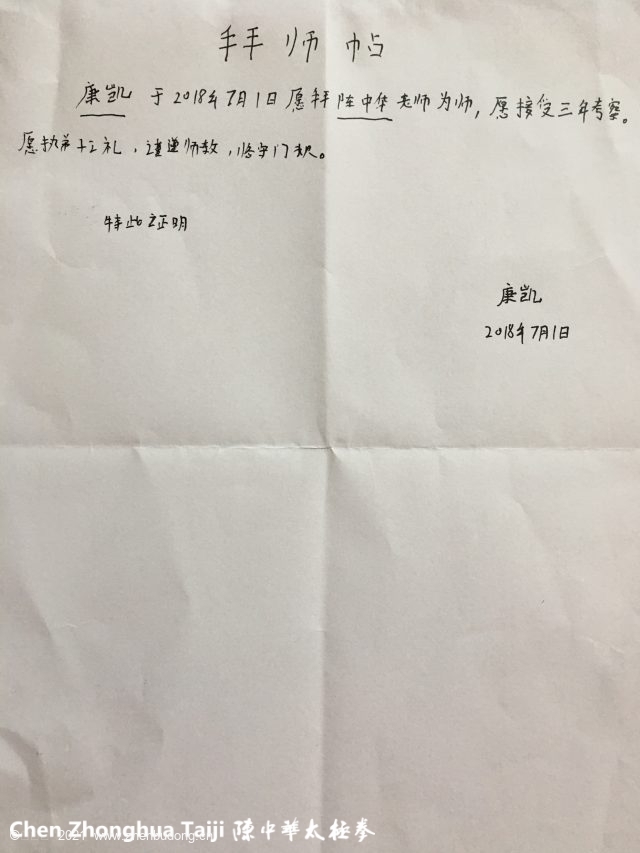 拜师帖
康凯于2018年7月1日愿拜陈中华老师为师，愿接受三年考察。
愿执弟子礼，谨遵师教，恪守门规。
特此证明
康凯
2018年7月1日
Chen Zhonghua Taiji 陳中華太极拳